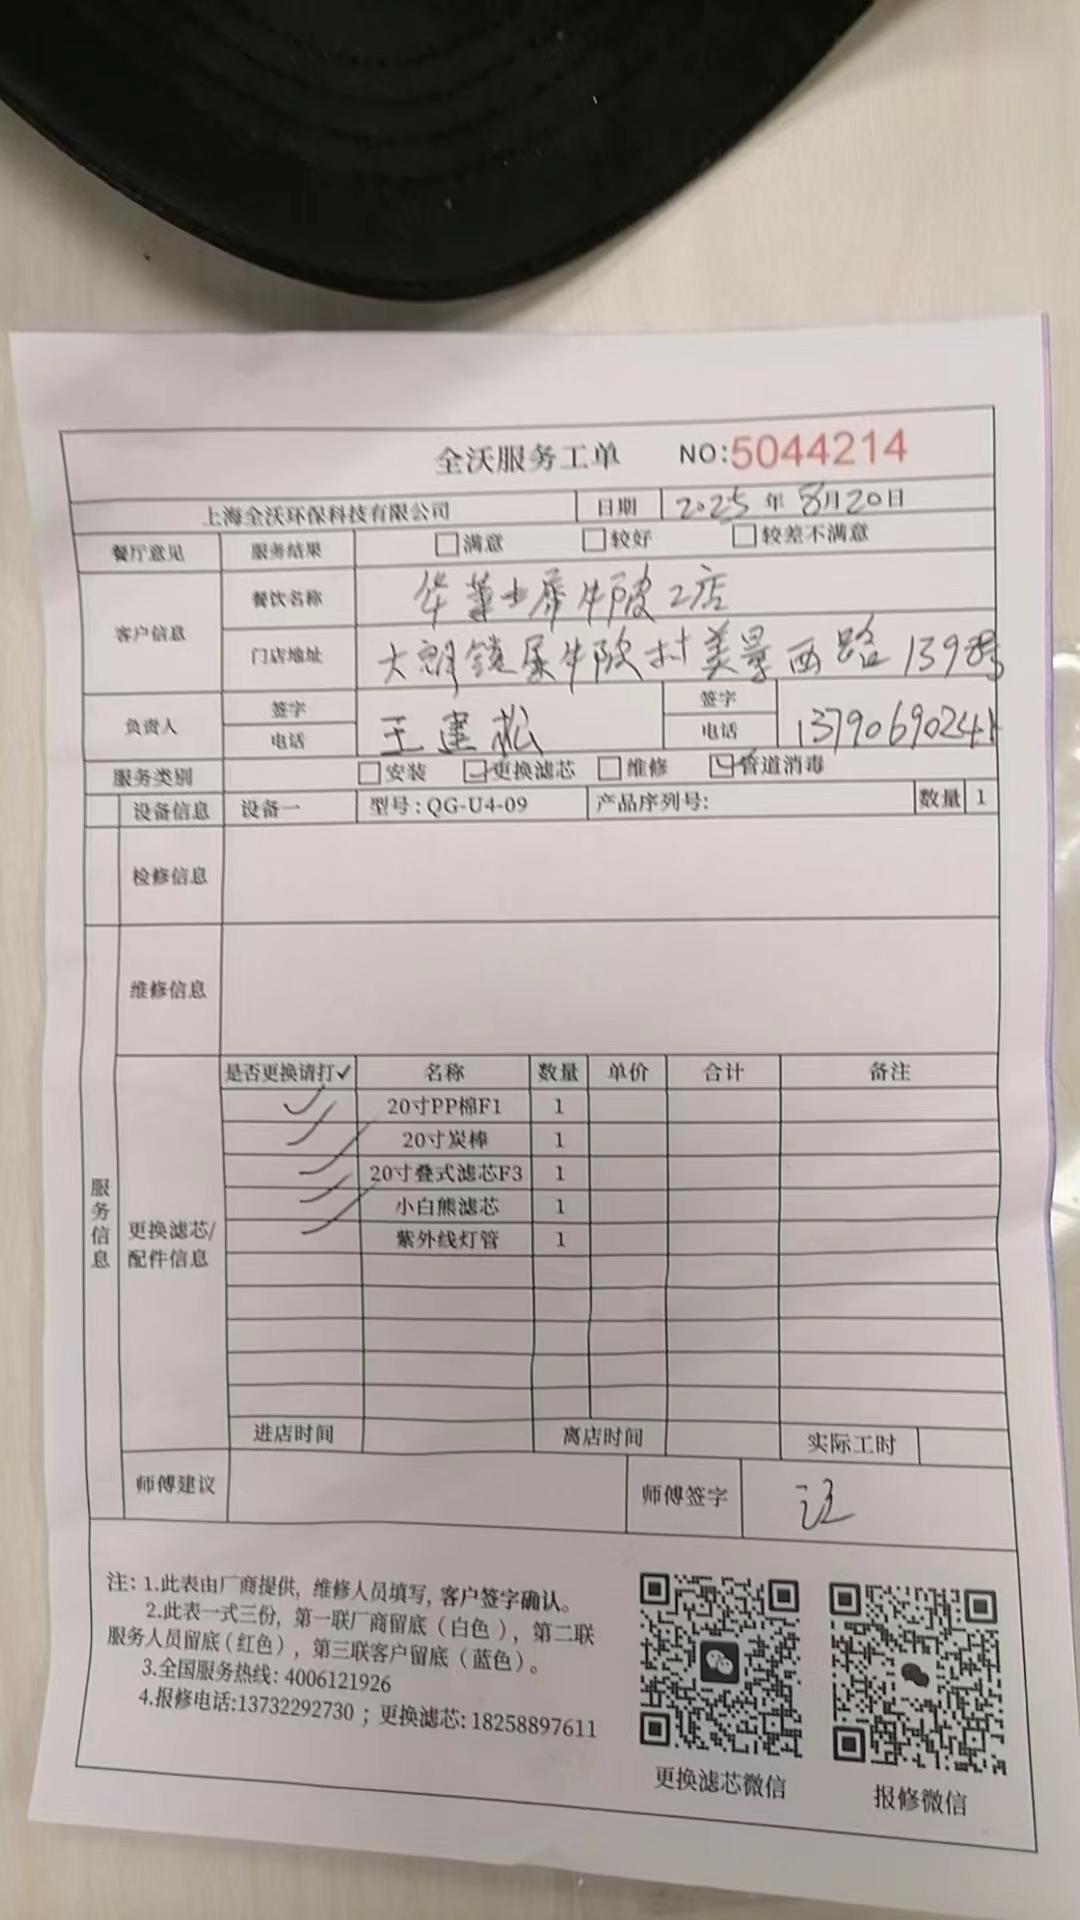 全沃服务工单 NO:5044214
上海全沃环保科技有限公司 日期 2025年8月20日
餐厅意见 服务结果 □满意 □较好 □较差不满意
客户信息 餐饮名称 华莱士犀牛陂2店
门店地址 大朗镇犀牛陂村美景西路1398号
负责人 签字 王建松 签字
电话 电话 1379069024
服务类别 □安装 ☑更换滤芯 □维修 ☑管道消毒
设备信息 设备一 型号:QG-U4-09 产品序列号: 数量 1
检修信息
维修信息
服务信息
更换滤芯/配件信息
是否更换请打✓ 名称 数量 单价 合计 备注
✓ 20寸PP棉F1 1
✓ 20寸炭棒 1
✓ 20寸叠式滤芯F3 1
✓ 小白熊滤芯 1
✓ 紫外线灯管 1
进店时间 离店时间 实际工时
师傅建议 师傅签字
注: 1.此表由厂商提供, 维修人员填写, 客户签字确认。
2.此表一式三份, 第一联厂商留底(白色), 第二联
服务人员留底(红色), 第三联客户留底(蓝色)。
3.全国服务热线: 4006121926
4.报修电话:13732292730 ; 更换滤芯: 18258897611
更换滤芯微信 报修微信